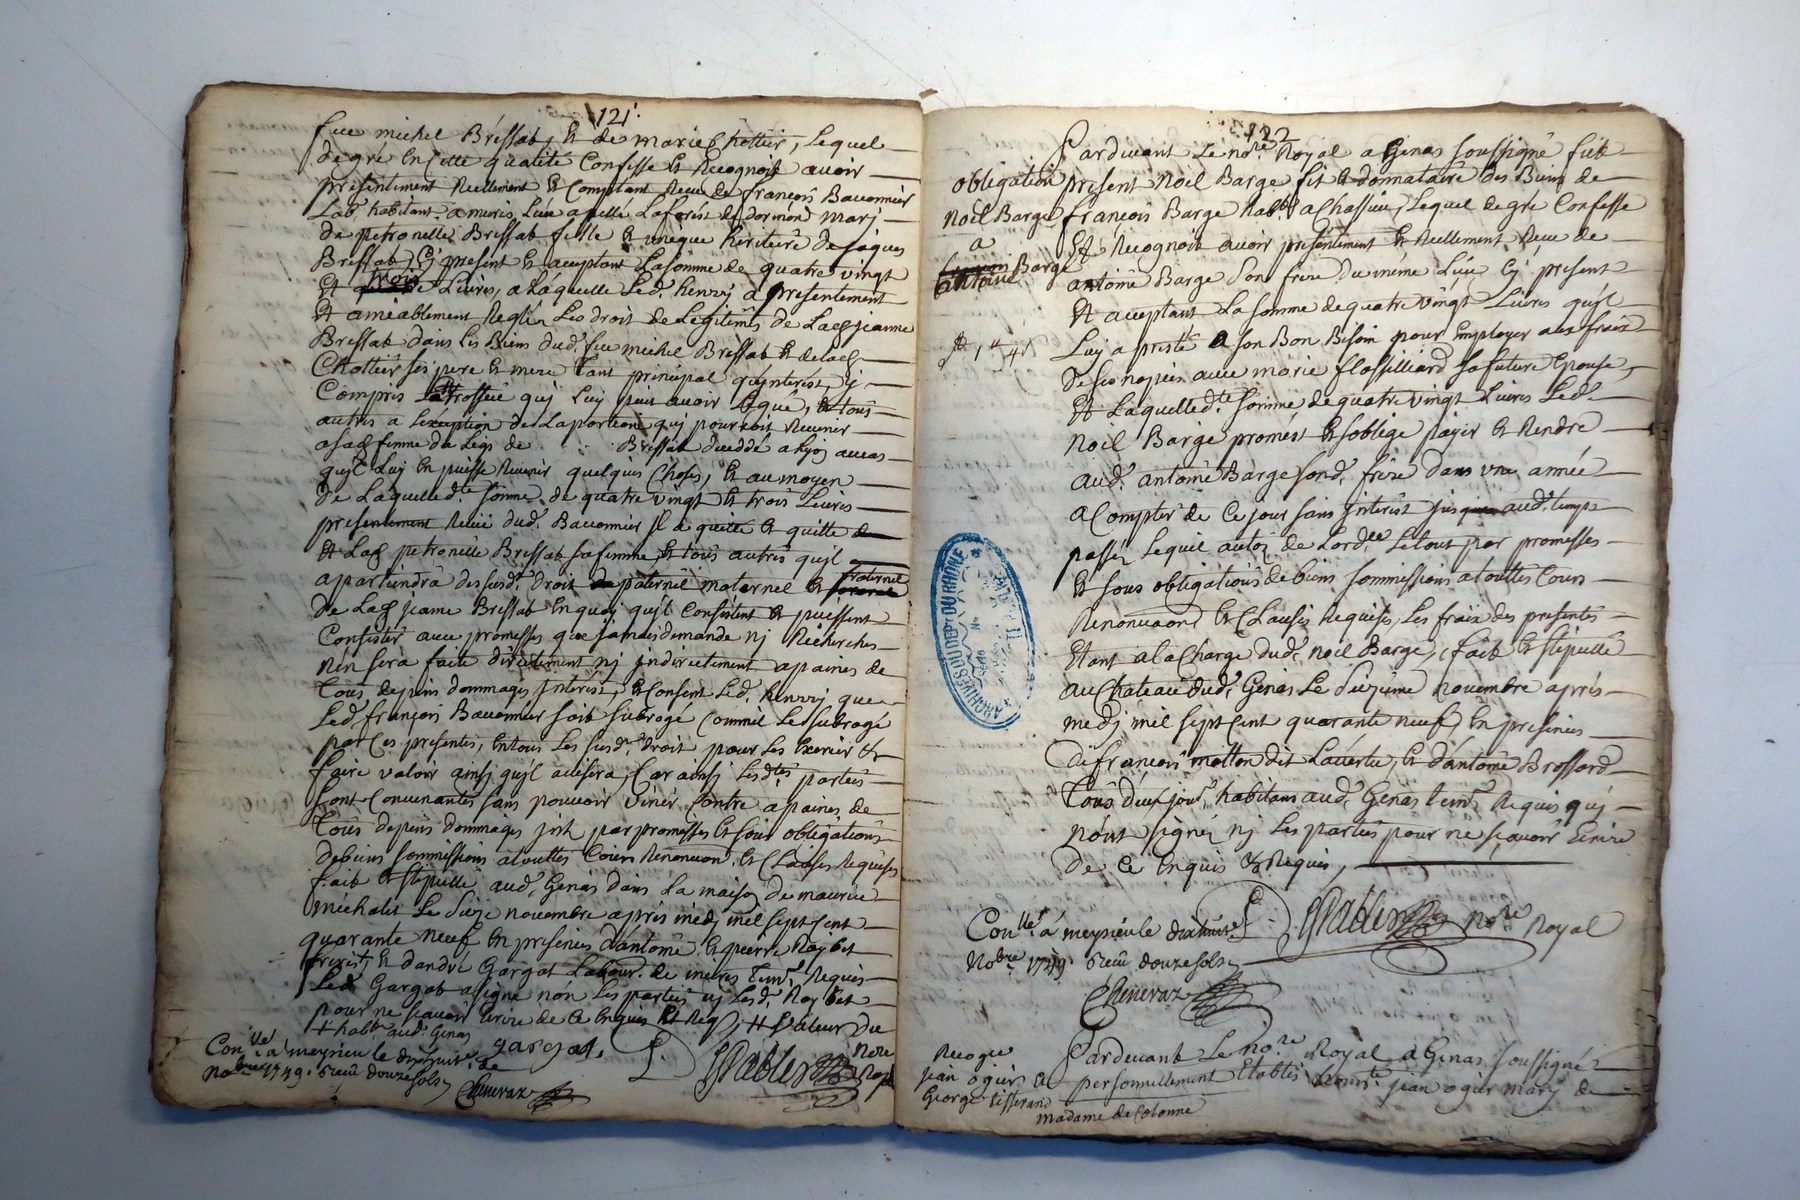 121
feu michel Bressat, et de marie Chottier, Lequel
de gré en cette qualité Confesse et Recognoit avoir
presentement Reellement et Comptant Receu de françois Bauonnier
Lab. habitant a meiris Lieu apellé Laforest de dormon mary
de petronelle Bressat fille et uneque heritiere de Jaques
Bressat, Cy present et aceptant La somme de quatre vingt
et trois Livres, a Laquelle Led. henry a presentement
et ameablement Reglé Les droit de Legitimes de Lad Jeanne
Bressat dans Les Biens dud. feu michel Bressat et de lad
Chottier ses pere et mere tant principal qu'interest, y
Compris La trossere quy Luy peut avoir Legué, et tous
autres a L'exeption de La portion quy pourroit Revenir
a sad femme du Legs de Bressat decedé a Lyon au cas
qu'il Luy en puisse Revenir quelques Choses, et au moyen
de Laquelle d.te somme de quatre vingt et trois Livres
presentement Receue dud. Bauonnier Il a quitté et quitte
et Lad petronille Bressat sa femme et tous autres qu'il
apartiendra des susd. droit paternel maternel et fraternel
de Lad jeanne Bressat en quoy qu'il Consistent et puissent
Consister avec promesses que jamais demande ny Recherches
n'en sera faite directement ny indirectement a paines de
tous depens dommages interest, et Consent Led. henry que
Led françois Bauonnier soit subrogé Comme il Le subroge
par Ces presentes, en tous Les susd. droit pour Les Exercer et
faire valoir ainsy qu'il avisera, Car ainsy Les d.tes parties
sont Convenantes sans pouvoir venir Contre a paines de
tous depens dommages int par promesses et sous obligations
de biens sommissions a touttes Cours Renonuaon et Clauses Requises
fait et stipullé aud. Genas dans La maison de maurice
michalet Le seize novembre après medy mil sept Cent
quarante neuf en presences d'antoine et pierre Roybet
freres et d'andré Gargat Labour. de meires tem. Requis
Led Gargat a signé non Les parties ny Les d. Roybet
pour ne scavoir Ecrire de Ce enquis et Req
+ habt. aud. Genas
gargat.
Con.lle a meyrieu le dixhuit
nobre 1749. Receu douze sols
Cheneraz
Nore
Royal
122
Pardevant Le no.re Royal a Genas soussigné fut
obligation
present Noël Barge fils et donnataire des Biens de
Noël Barge
françois Barge habt. a Chassieu, Lequel de gré Confesse
a
et Recognoit avoir presentement et Reellement Receu de
Barge
Antoine
antoine Barge son frere du même Lieu Cy present
et aceptant La somme de quatre vingt Livres qu'il
Luy a presté a son Bon Besoin pour Employer aux frais
de ses nopces avec marie flossilliard sa future Epouse,
et Laquelle d.te somme de quatre vingt Livres Led.
Noël Barge promest et s'oblige payer et Rendre
aud. antoine Barge sond. frere dans une année
a Compter de Ce jour sans interest jusques aud. temps
passé, Lequel autor de Lord.ce Le tout par promesses
et sous obligations de biens sommissions a touttes Cours
Renonuaon et Clauses Requises, Les fraix des presentes
etant a la Charge dud. Noël Barge, fait et stipullé
au Chateau dud. Genas Le dixieme novembre après
medy mil sept Cent quarante neuf, en presences
de françois motton dit Lavertu, et d'antoine Brossard
tous deux jour. habitans aud. Genas tem. Requis quy
n'ont signé ny Les parties pour ne scavoir Ecrire
de Ce Enquis et Requis,
no.re Royal
Con.lle a meyrieu le dixhuit
Nobre 1749. Receu douze sols
Cheneraz
Recogce
Pardevant Le no.re Royal a Genas soussigné
jean ogier et
personnellement Etablis jean ogier mary de
George tisserand
madame de Colonne
ARCHIVES DU DEPT DU RHONE